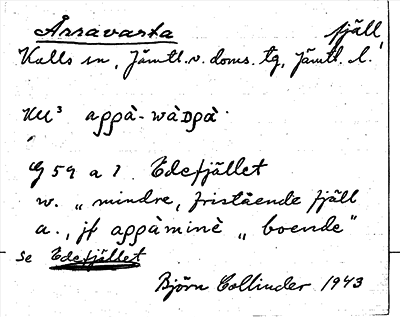 Årravarta fjäll
Kalls sn, Jämtl. v. doms. tg, Jämtl. l.
KU³ appà-wàDpà
G 59 a 1 Edefjället
w. „ mindre, fristående fjäll
a., jf appàminè „ boende"
se Edefjället
Björn Collinder 1943